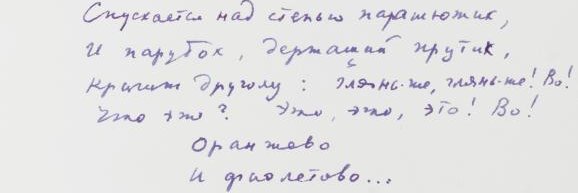 Спускается над степью парашютик,
И парубок, держащий прутик,
Кричит другому: глянь-же, глянь-же! Во!
Что это? Это, это, это! Во!
Оранжево
И фиолетово...